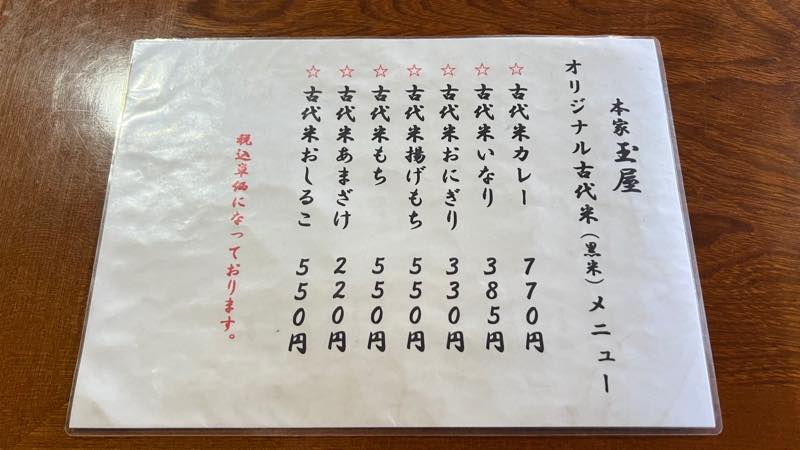 本家玉屋
オリジナル古代米（黒米）メニュー
☆古代米カレー 770円
☆古代米いなり 385円
☆古代米おにぎり 330円
☆古代米揚げもち 550円
☆古代米もち 550円
☆古代米あまざけ 220円
☆古代米おしるこ 550円
税込単価になっております。